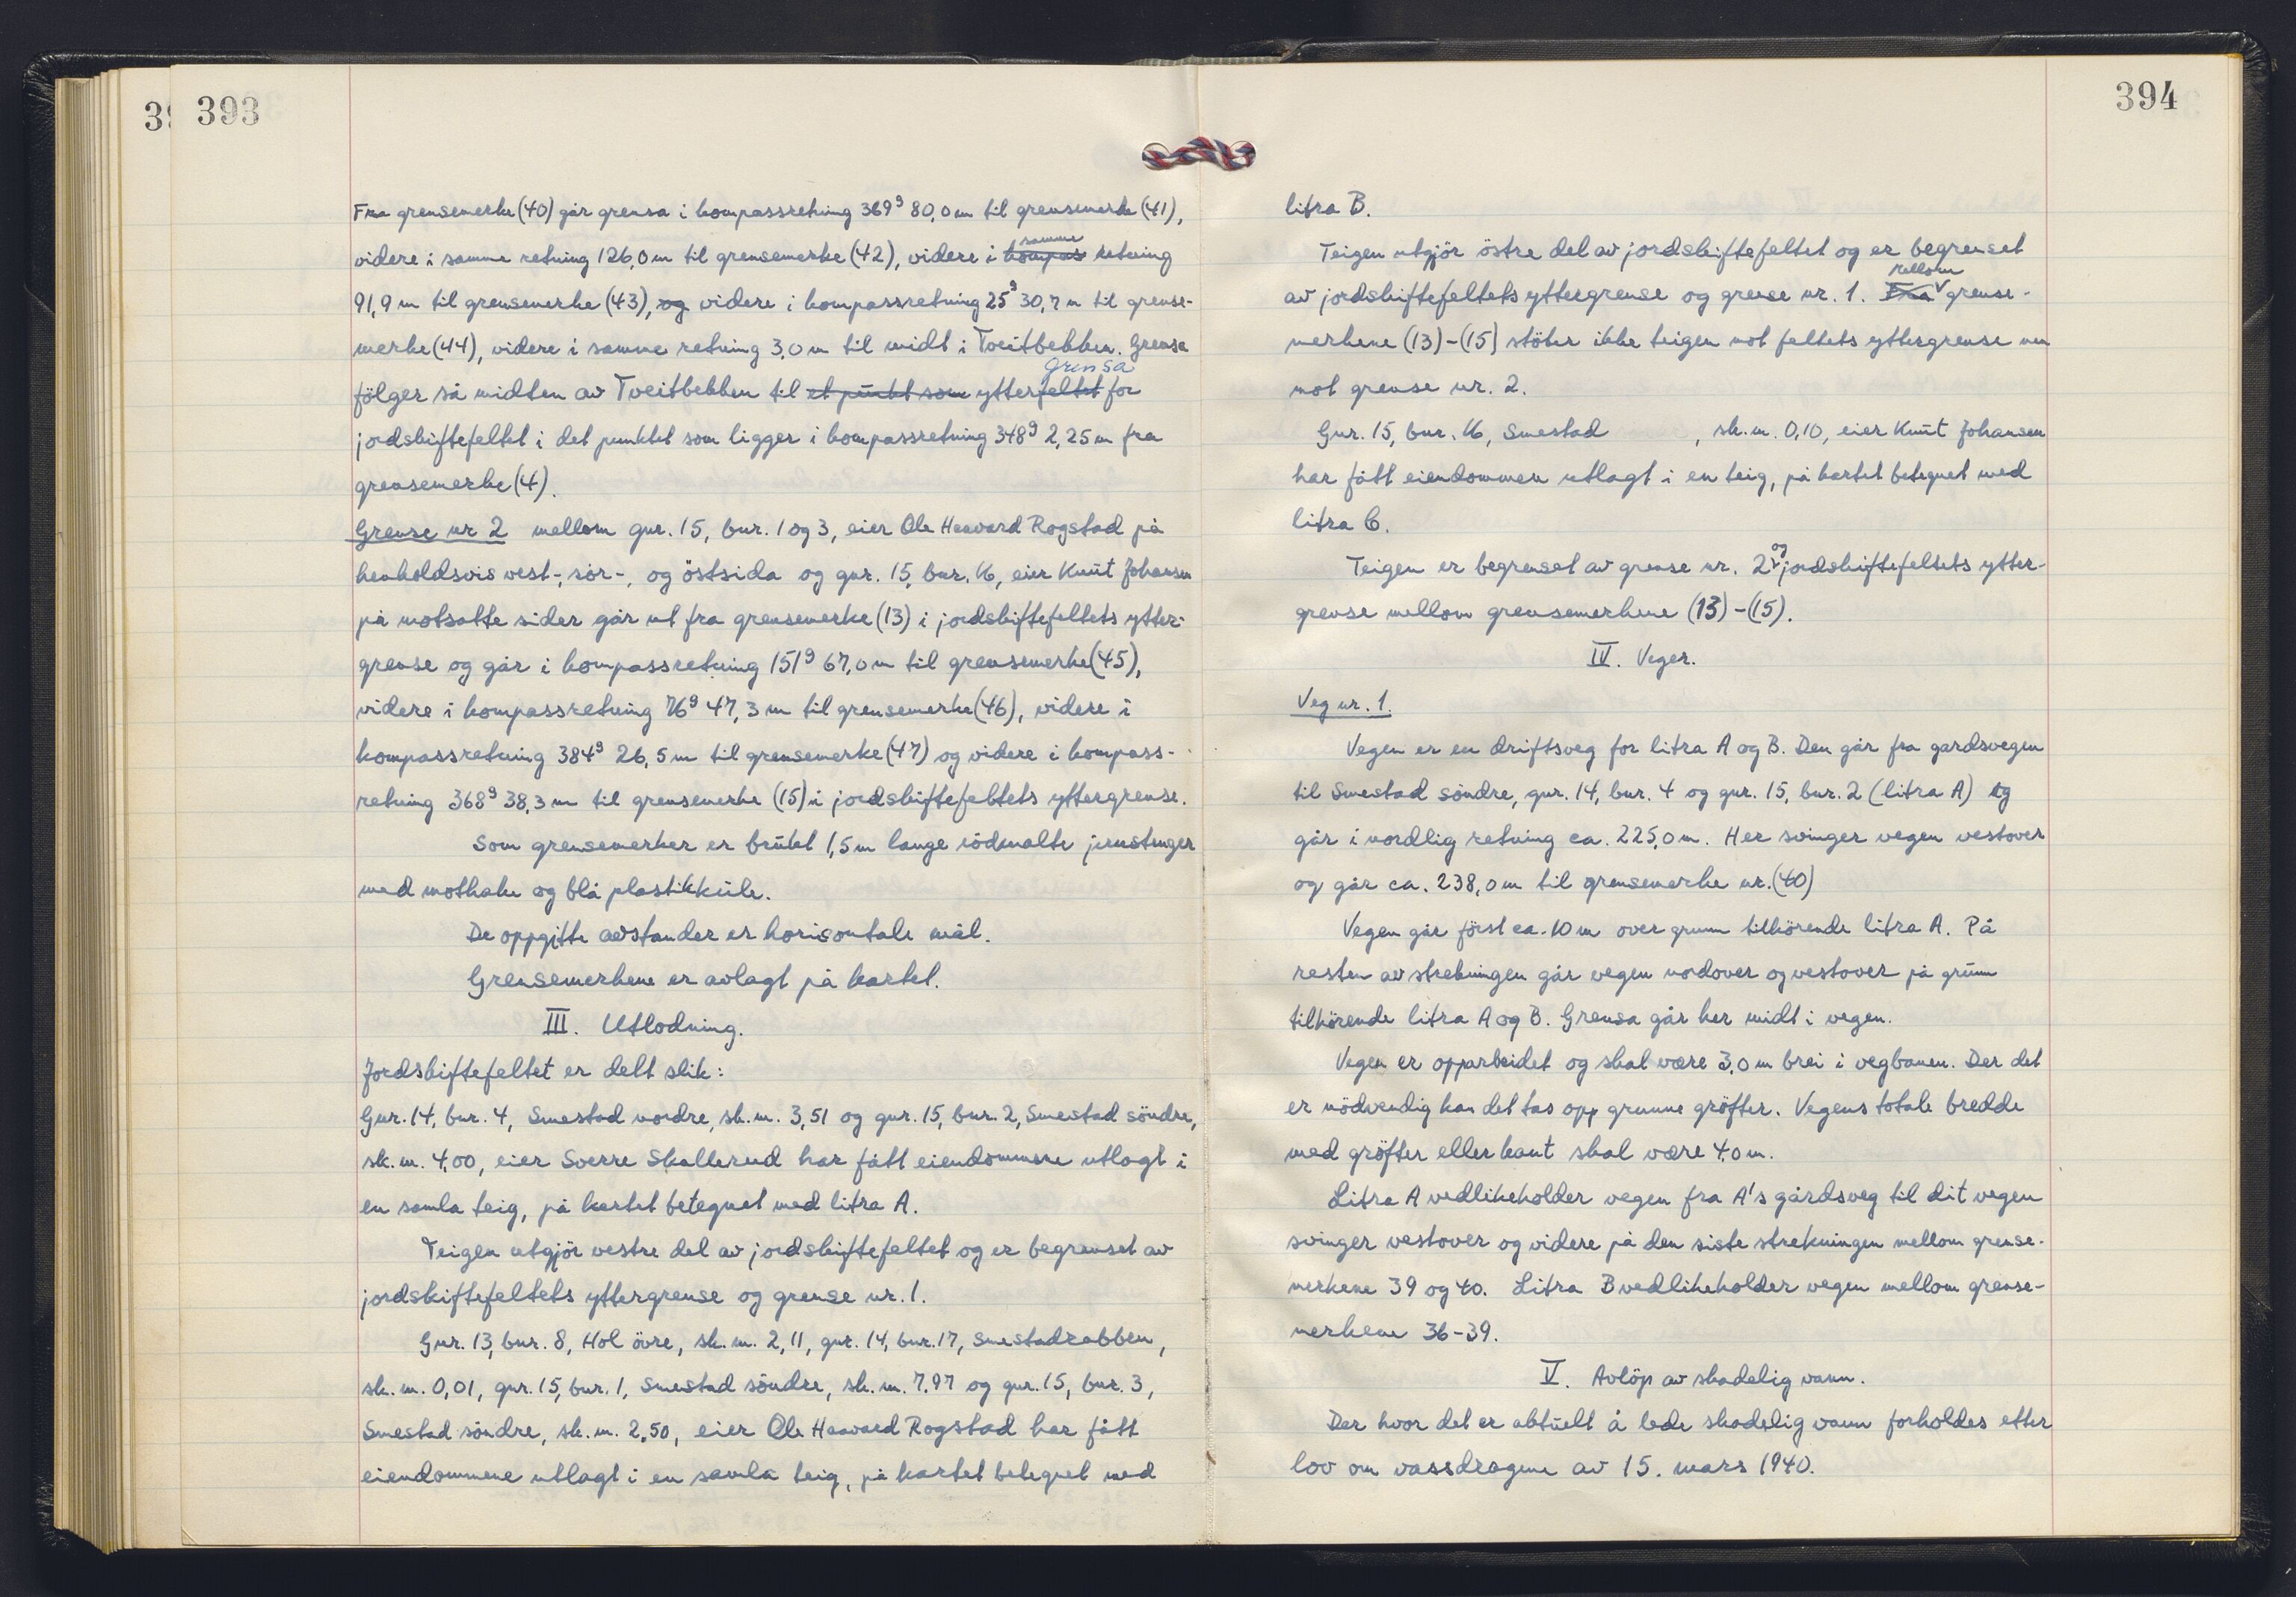 39
393
Fra grensemerke (40) går grensa i kompassretning 369g 80,0 m til grensemerke (41),
samme
videre i samme retning 126,0 m til grensemerke (42), videre i kompas retning
91,9 m til grensemerke (43), og videre i kompassretning 25g 30,7 m til grense-
merke (44), videre i samme retning 3,0 m til midt i Tveitbekken. Grensa
grensa
fölger så midten av Tveitbekken til et punkt som ytterfeltet for
jordskiftefeltet i det punktet som ligger i kompassretning 348g 2,25 m fra
grensemerke (4).
Grense nr 2 mellom gnr. 15, bnr. 1 og 3, eier Ole Haavard Rogstad på
henholdsvis vest-, sör-, og östsida og gnr. 15, bnr. 16, eier Knut Johansen
på motsatte sider går ut fra grensemerke (13) i jordskiftefeltets ytter-
grense og går i kompassretning 151g 67,0 m til grensemerke (45),
videre i kompassretning 76g 47,3 m til grensemerke (46), videre i
kompassretning 384g 26,5 m til grensemerke (47) og videre i kompass-
retning 368g 38,3 m til grensemerke (15) i jordskiftefeltets yttergrense.
Som grensemerker er brukt 1,5 m lange rödmalte jernstenger
med mothake og blå plastikkule.
De oppgitte avstander er horisontale mål.
Grensemerkene er avlagt på kartet.
III. Utlodning.
Jordskiftefeltet er delt slik:
Gnr. 14, bnr. 4, Smestad nordre, sk.m. 3,51 og gnr. 15, bnr. 2, Smestad söndre,
sk.m. 4,00, eier Sverre Skallerud har fått eiendommene utlagt i
en samla teig, på kartet betegnet med litra A.
Teigen utgjör vestre del av jordskiftefeltet og er begrenset av
jordskiftefeltets yttergrense og grense nr. 1.
Gnr. 13, bnr. 8, Hol övre, sk.m. 2,11, gnr. 14, bnr. 17, Smestadrabben,
sk.m. 0,01, gnr. 15, bnr. 1, Smestad söndre, sk.m. 7,97 og gnr. 15, bnr. 3,
Smestad söndre, sk.m. 2,50, eier Ole Haavard Rogstad har fått
eiendommene utlagt i en samla teig, på kartet betegnet med
394
litra B.
Teigen utgjör östre del av jordskiftefeltet og er begrenset
Mellom
av jordskiftefeltets yttergrense og grense nr. 1. Fra grense-
merkene (13)-(15) stöter ikke teigen mot feltets yttergrense men
mot grense nr. 2.
Gnr. 15, bnr. 16, Smestad , sk.m. 0,10, eier Knut Johansen
har fått eiendommen utlagt i en teig, på kartet betegnet med
litra C.
og
Teigen er begrenset av grense nr. 2 jordskiftefeltets ytter-
grense mellom grensemerkene (13)-(15).
IV. Veger.
Veg nr. 1.
Vegen er en driftsveg for litra A og B. Den går fra gardsvegen
til Smestad söndre, gnr. 14, bnr. 4 og gnr. 15, bnr. 2 (litra A) og
går i nordlig retning ca. 225,0 m. Her svinger vegen vestover
og går ca. 238,0 m til grensemerke nr. (40)
Vegen går först ca. 10 m over grunn tilhörende litra A. På
resten av strekningen går vegen nordover og vestover på grunn
tilhörende litra A og B. Grensa går her midt i vegen.
Vegen er opparbeidet og skal være 3,0 m brei i vegbanen. Der det
er nödvendig kan det tas opp grunne gröfter. Vegens totale bredde
med gröfter eller kant skal være 4,0 m.
Litra A vedlikeholder vegen fra A's gårdsveg til dit vegen
svinger vestover og videre på den siste strekningen mellom grense-
merkene 39 og 40. Litra B vedlikeholder vegen mellom grense-
merkene 36-39.
V. Avlöp av skadelig vann.
Der hvor det er aktuelt å lede skadelig vann forholdes etter
lov om vassdragene av 15. mars 1940.